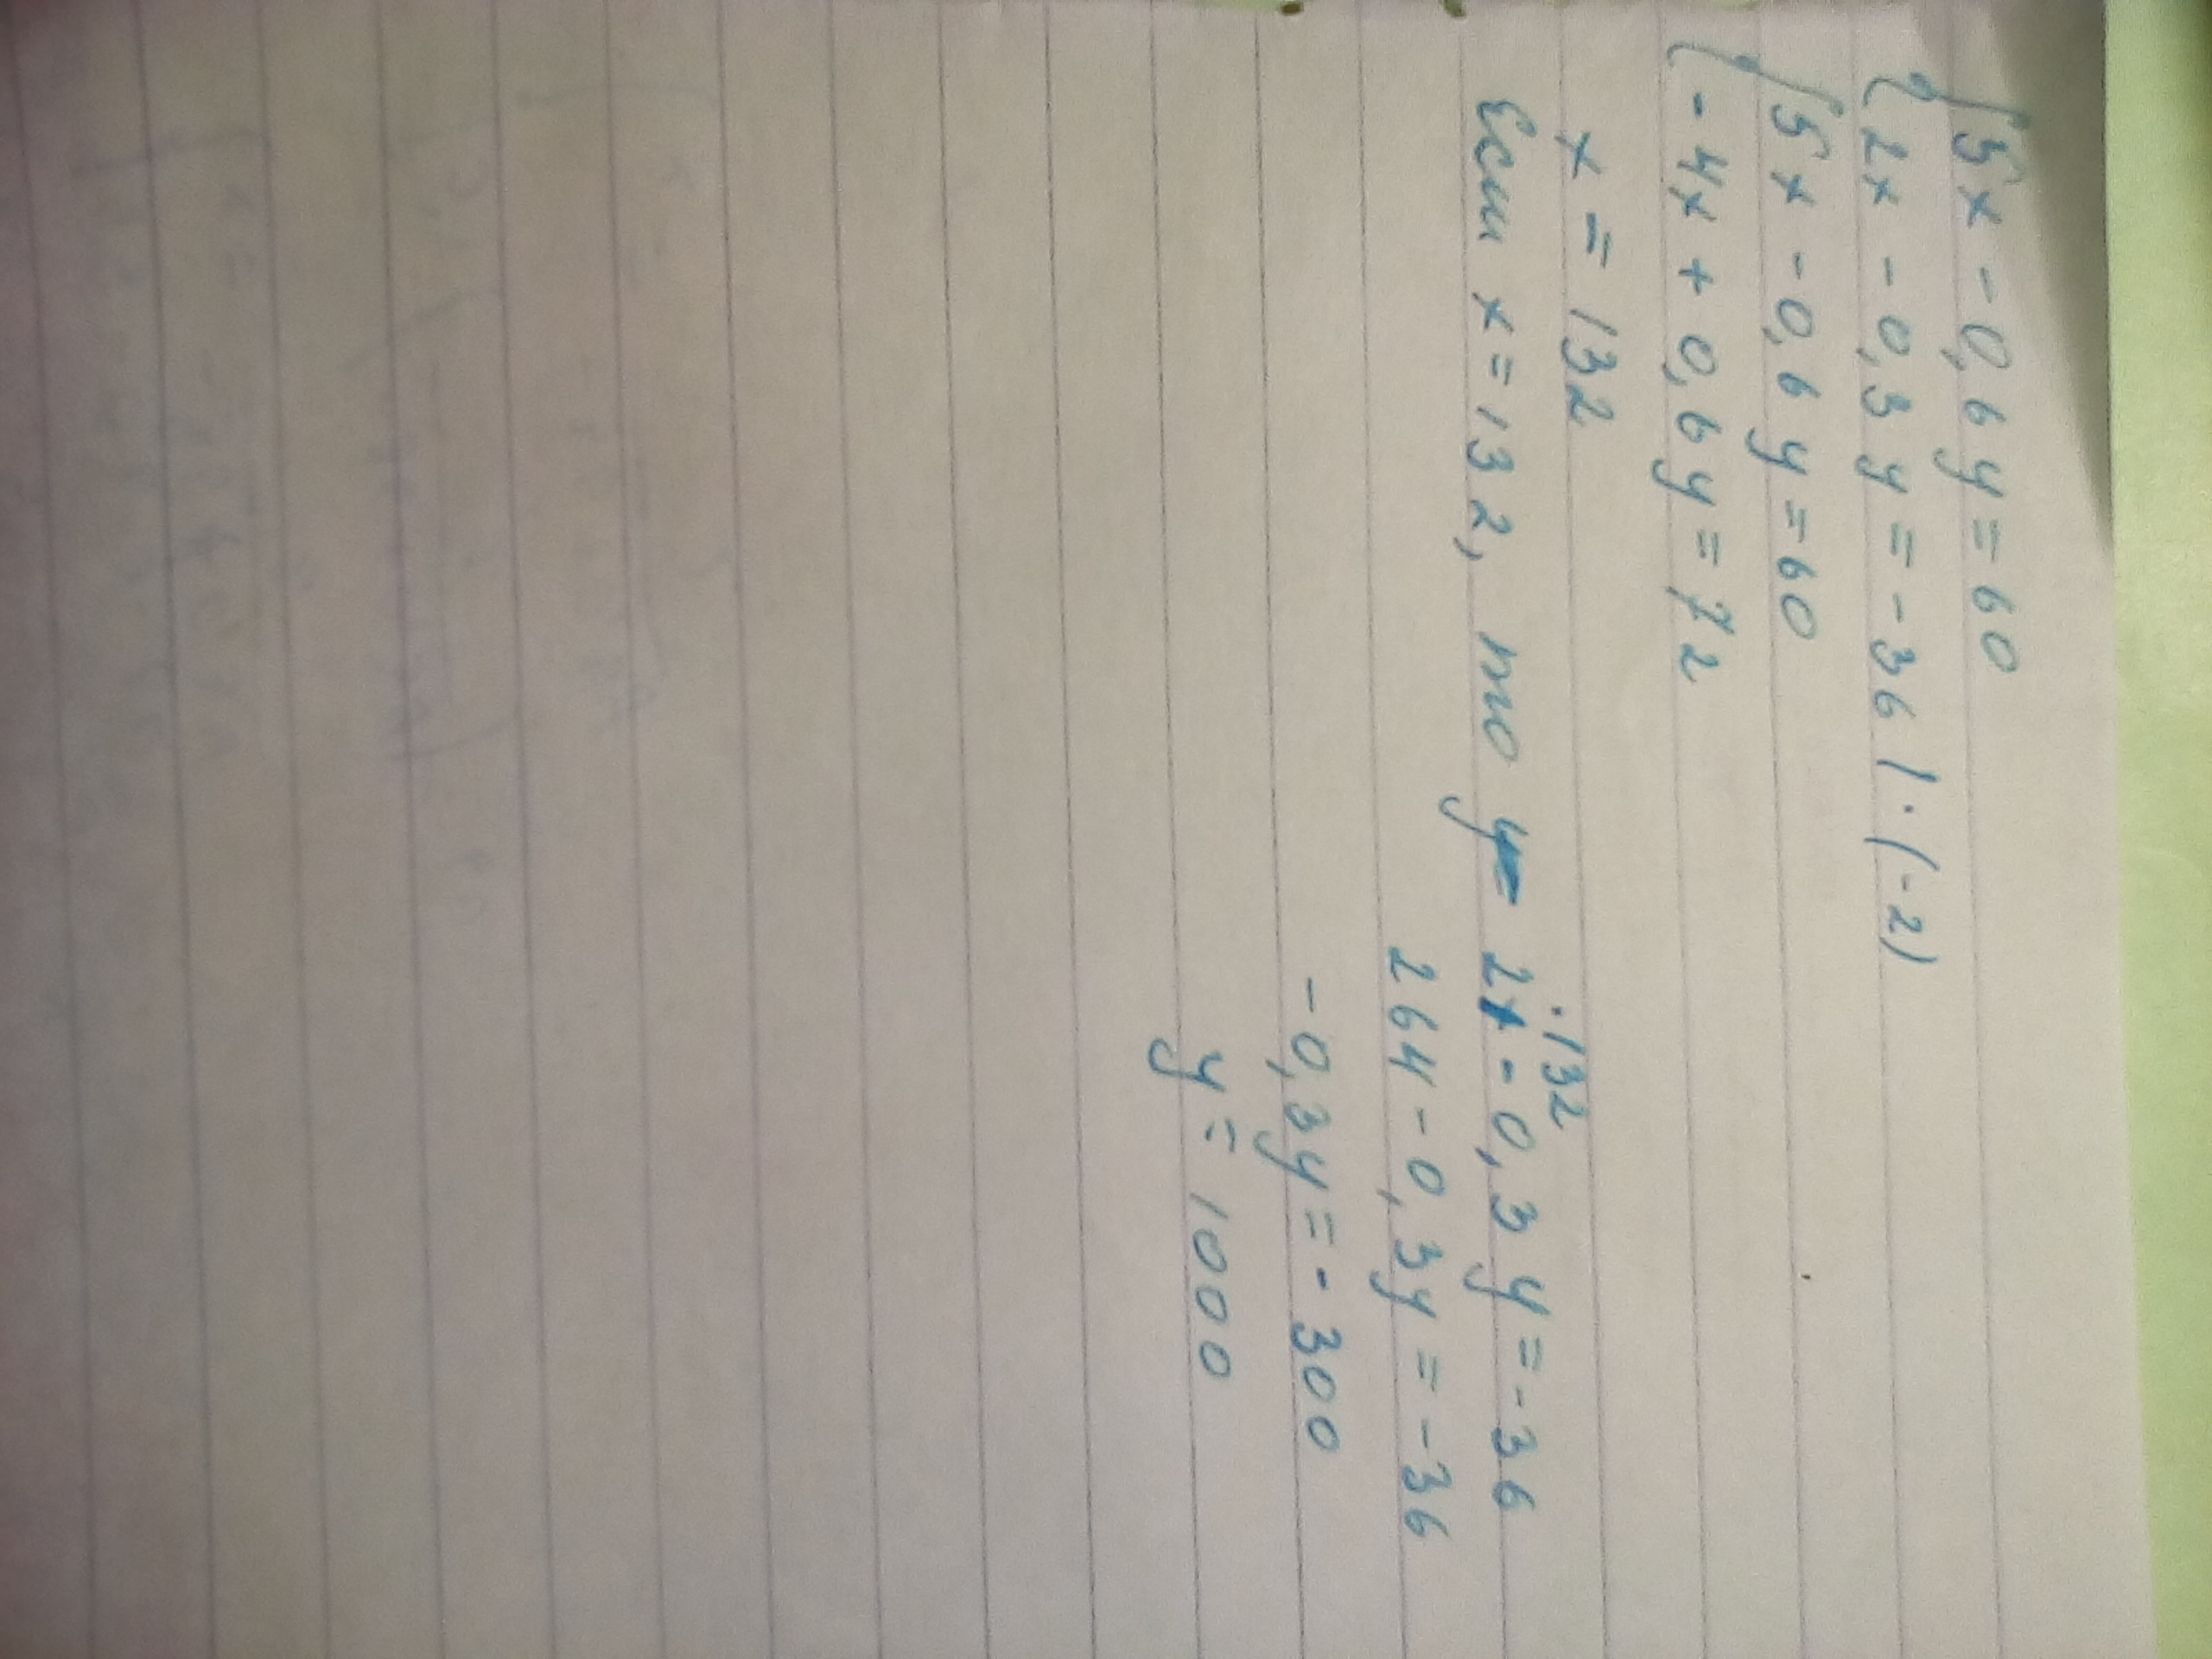 {5x - 0,6y = 60
{2x - 0,3y = -36 | · (-2)
{5x - 0,6y = 60
{-4x + 0,6y = 72
x = 132
Если x = 132, то y= 2x·132 - 0,3y = -36
264 - 0,3y = -36
-0,3y = -300
y = 1000